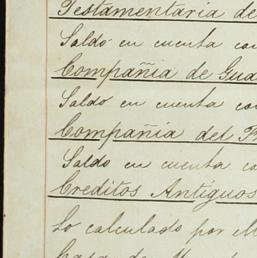 Testamentaria de
Saldo en cuenta co
Compañia de Gua
Saldo en cuenta co
Compañia del F
Saldo en cuenta co
Creditos Antiguos
Lo calculado por M
Casa de